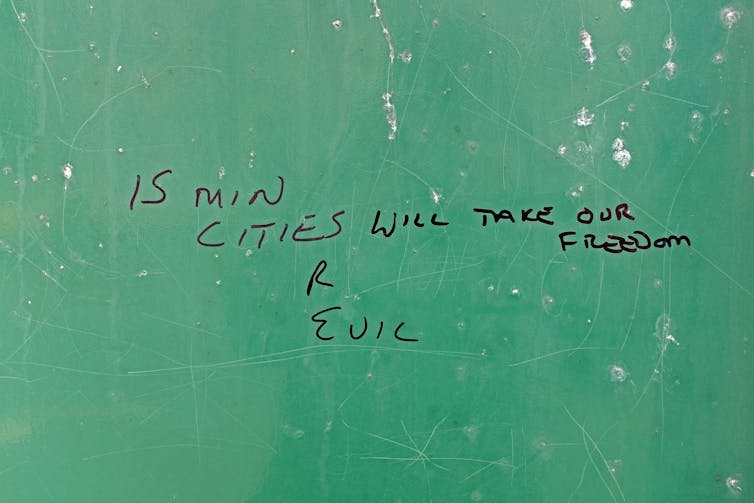 15 MIN
CITIES WILL TAKE OUR
FREEDOM
R
EVIL